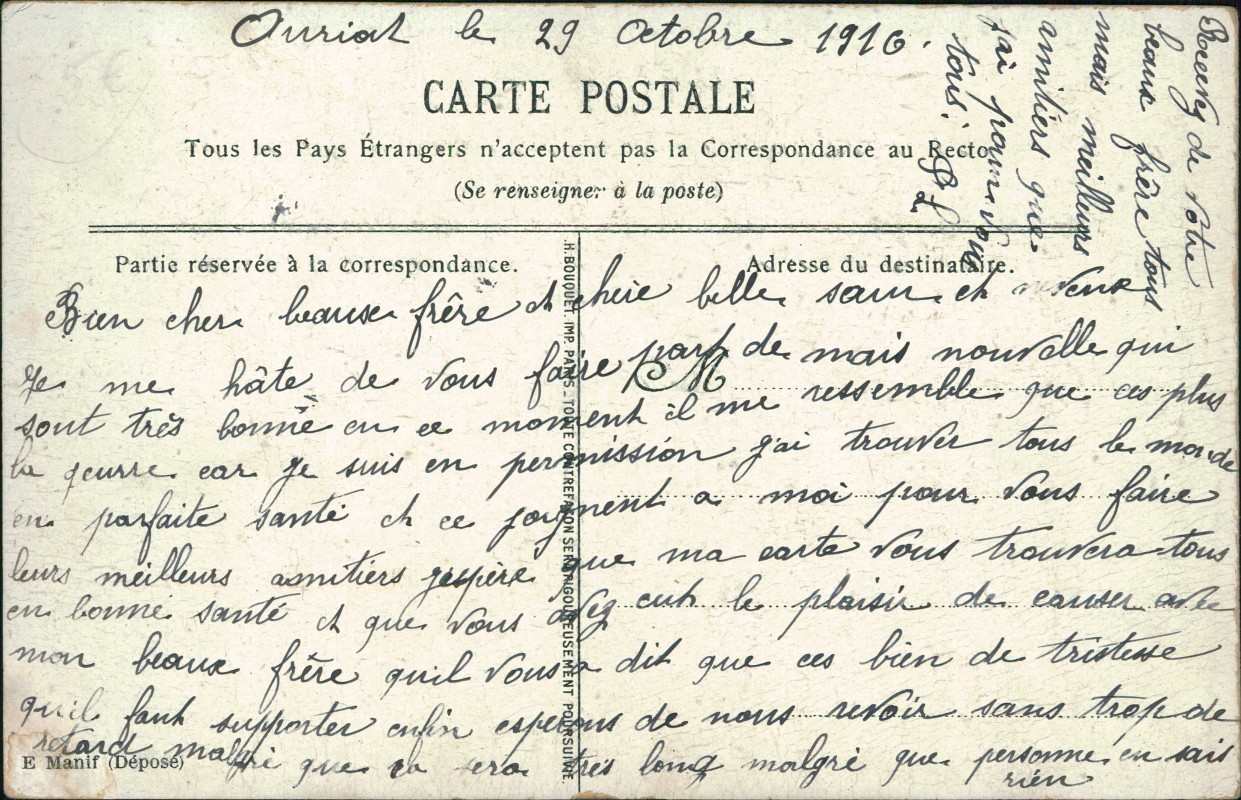 Auriat le 29 Octobre 1916.
CARTE POSTALE
Tous les Pays Étrangers n'acceptent pas la Correspondance au Recto
(Se renseigner à la poste)
Partie réservée à la correspondance.
Adresse du destinataire.
Bien cher beaux frère et chère belle sœur et neveux
Je me hâte de vous faire part de mais nouvelle qui
sont très bonne en ce moment il me ressemble que ces plus
la geurre car je suis en permission j'ai trouver tous le monde
en parfaite santé et ce joignent a moi pour vous faire
leurs meilleurs amitiers jespère que ma carte vous trouvera tous
en bonne santé et que vous avez eut le plaisir de causer avec
mon beaux frère quil vous a dit que ces bien de tristesse
quil faut supporter enfin esperons de nous revoir sans trop de
retard malgré que sa sera très long malgré que personne en sais
rien
Recevez de votre
beaux frère tous
mais meilleurs
amitiers que
j'ai pour vous
tous.
P L
P M
E Manif (Déposé)
H. BOUQUET. IMP. PARIS - TOUTE CONTREFAÇON SERA RIGOUREUSEMENT POURSUIVIE